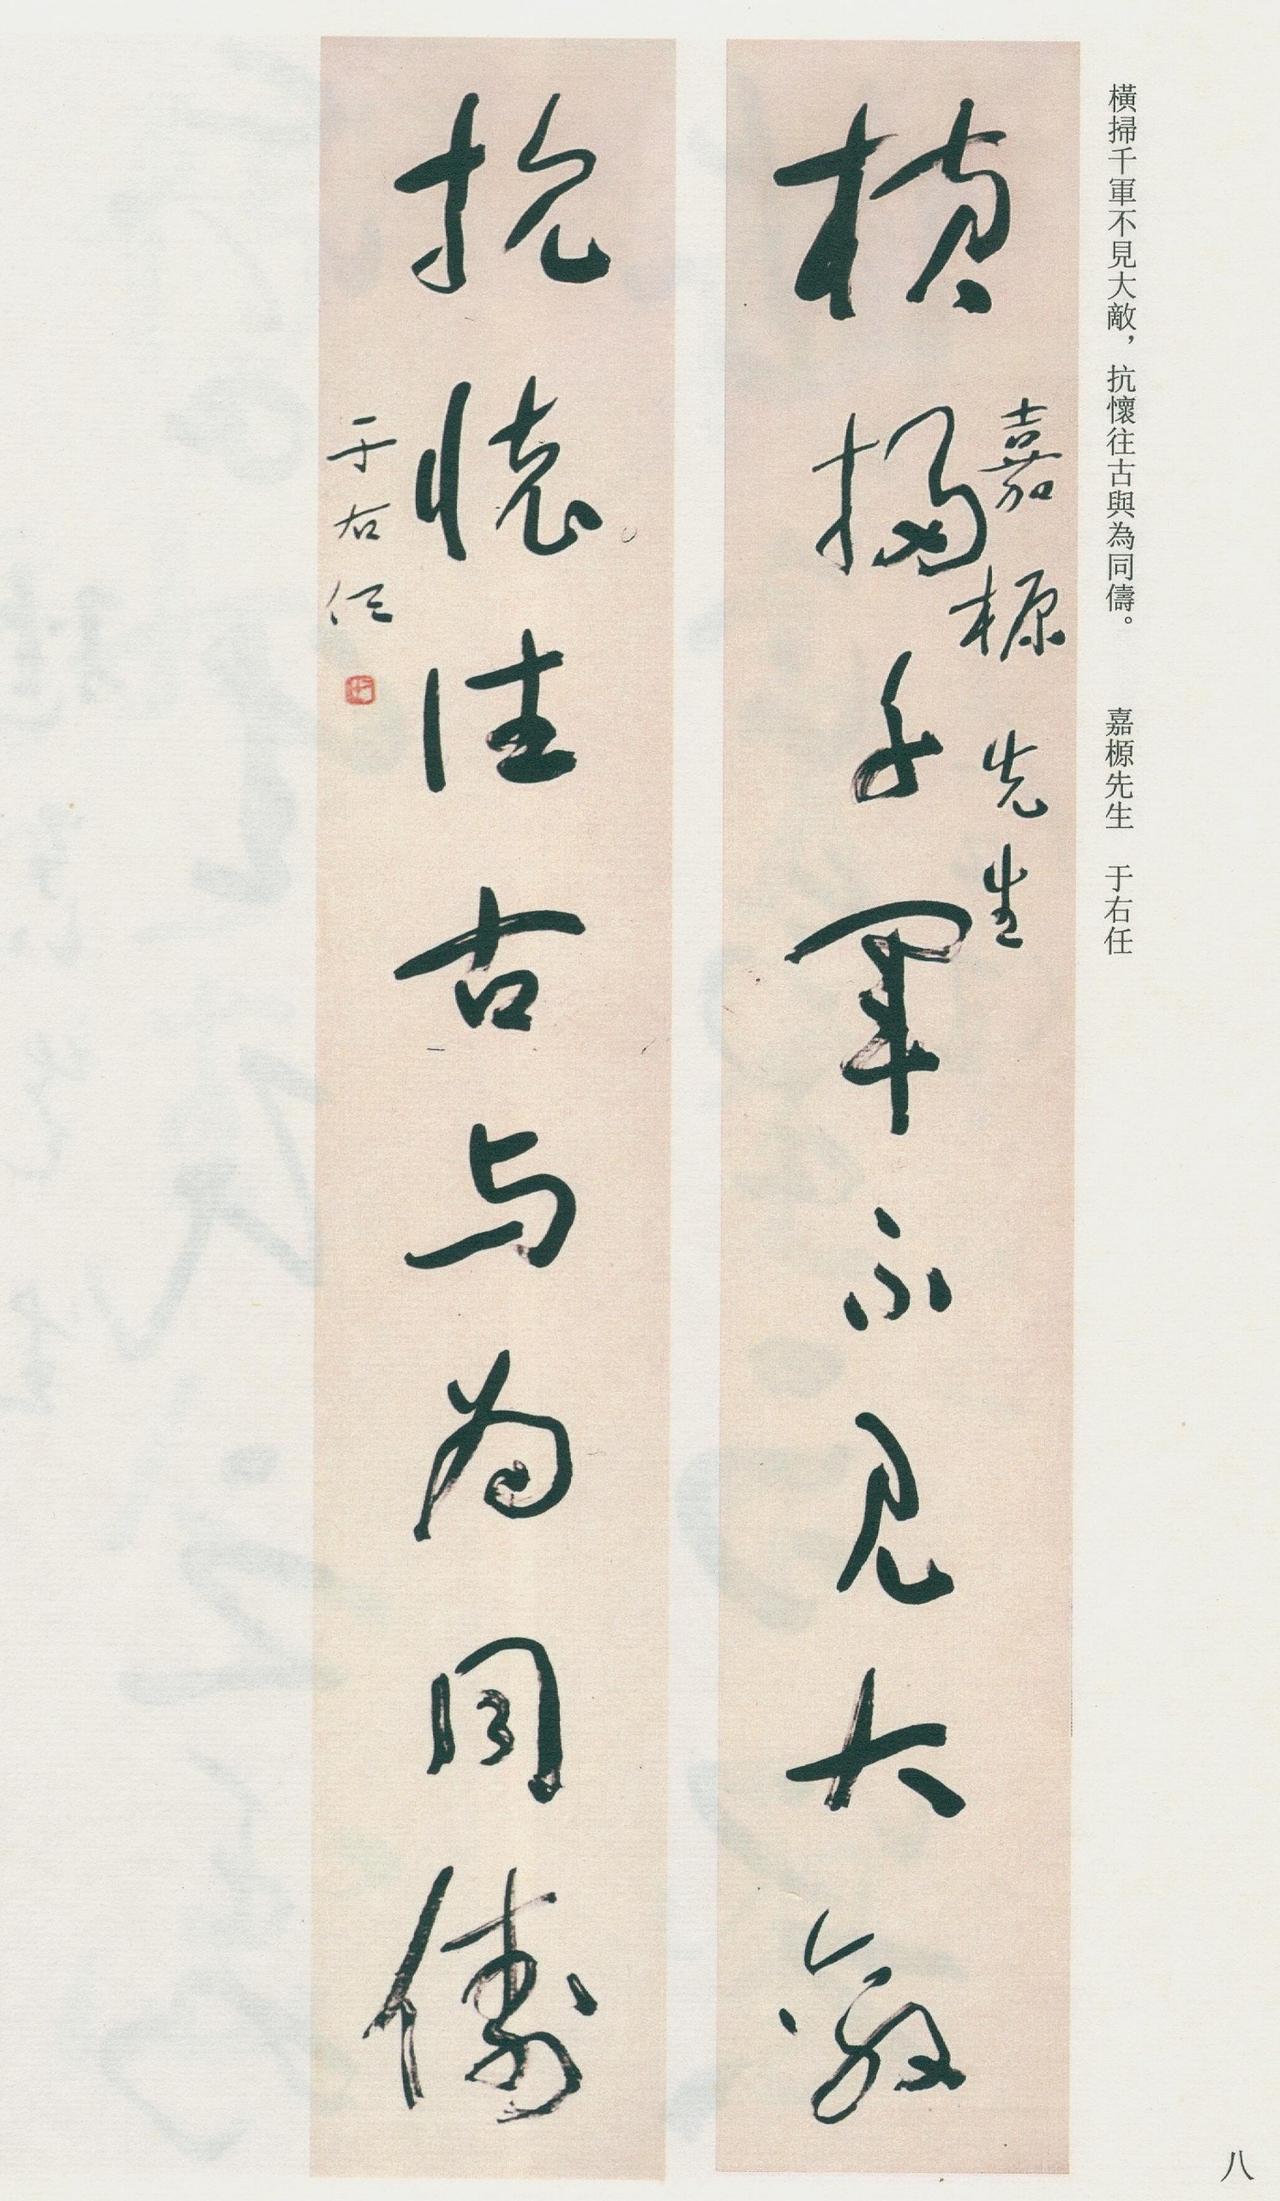 橫掃千軍不見大敵，抗懷往古與為同儔。　嘉榞先生　于右任
嘉榞先生
橫掃千軍不見大敵
抗懷往古与為同儔
于右任
八